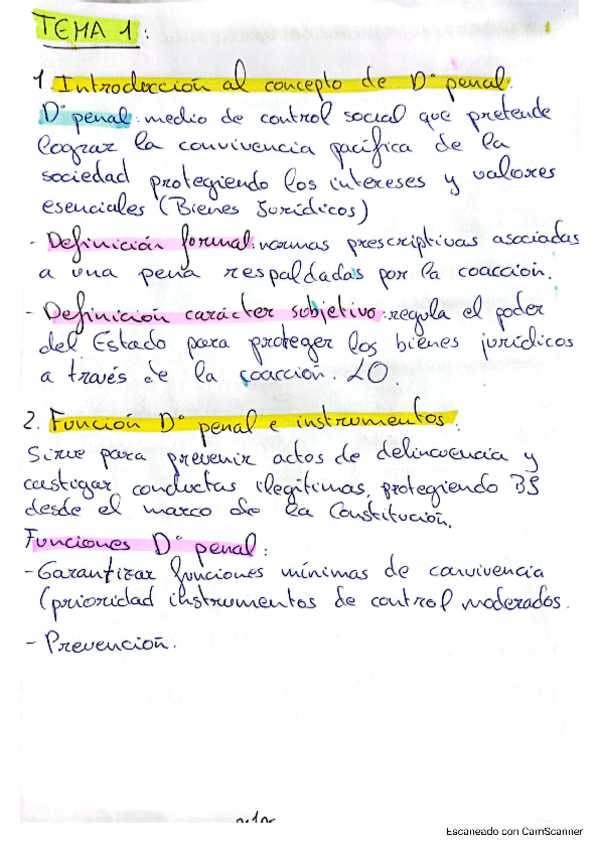 TEMA 1:
1. Introducción al concepto de Dº penal.
Dº penal: medio de control social que pretende
lograr la convivencia pacífica de la
sociedad protegiendo los intereses y valores
esenciales (Bienes Jurídicos)
- Definición formal: normas prescriptivas asociadas
a una pena respaldadas por la coacción.
- Definición carácter subjetivo: regula el poder
del Estado para proteger los bienes jurídicos
a través de la coacción. LO.
2. Función Dº penal e instrumentos.
Sirve para prevenir actos de delincuencia y
castigar conductas ilegítimas, protegiendo BJ
desde el marco de la Constitución.
Funciones Dº penal:
- Garantizar funciones mínimas de convivencia
(prioridad instrumentos de control moderados.
- Prevención.
Escaneado con CamScanner